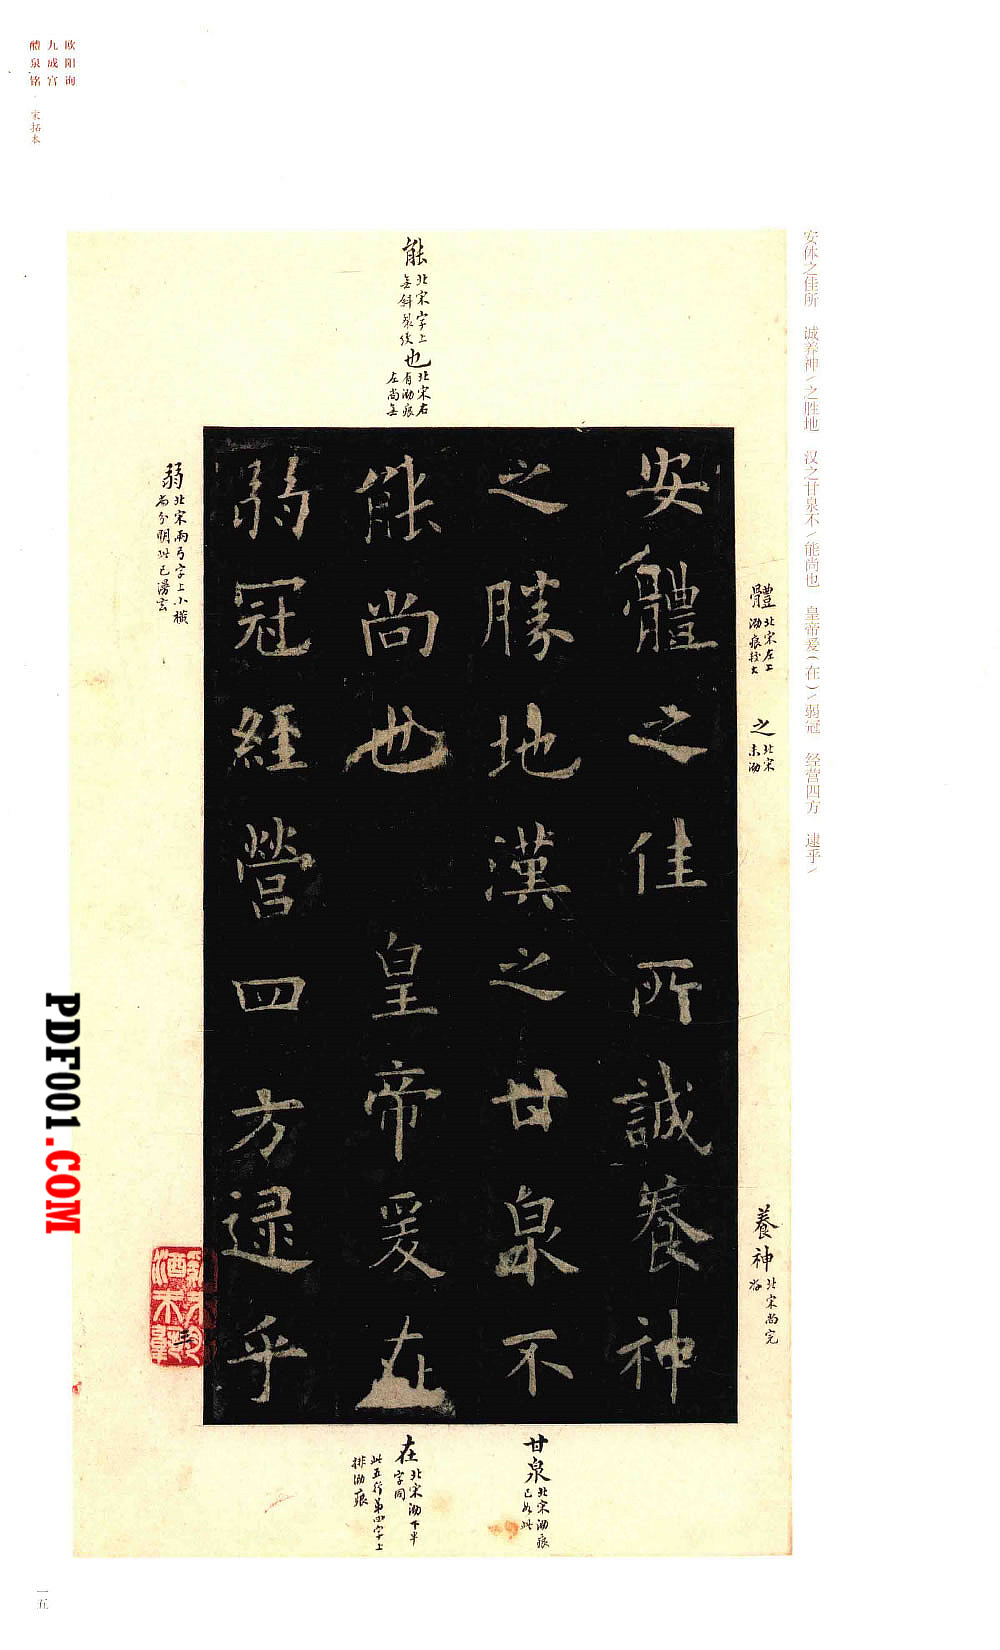 欧阳询
九成宫
醴泉铭·宋拓本
安体之佳所 诚养神/之胜地 汉之甘泉不/能尚也 皇帝爱(在)/弱冠 经营四方 逮乎/
體
北宋左上
泐痕較大
之
北宋
未泐
養神
北宋尚完
好
能
北宋字上
無斜裂紋
也
北宋右
有泐痕
左尚無
弱
北宋兩弓字上小橫
尚分明此已漫玄
安體之佳所誠養神
之勝地漢之甘泉不
能尚也 皇帝爰在
弱冠經營四方逮乎
甘泉
北宋泐痕
已如此
在
北宋泐下半
字同
此五行第四字上
排泐痕
PDF001.COM
一五